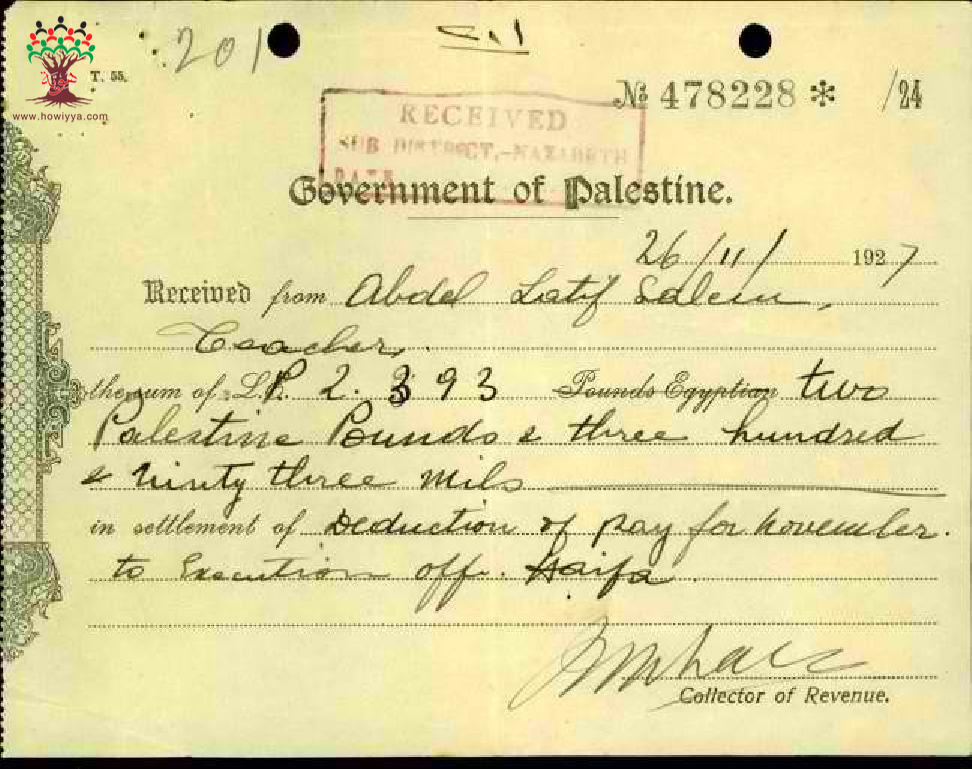 201
T. 55.
www.howiyya.com
№ 478228 * /24
RECEIVED
SUB DISTRICT,-NAZARETH
DATE
Government of Palestine.
26/11/ 1927
Received from Abdel Latif Salem,
Teacher,
the sum of L.P. 2. 393 Pounds Egyptian two
Palestine Pounds & three hundred
& ninty three mils
in settlement of Deduction of pay for November.
to Execution off. Haifa
Collector of Revenue.